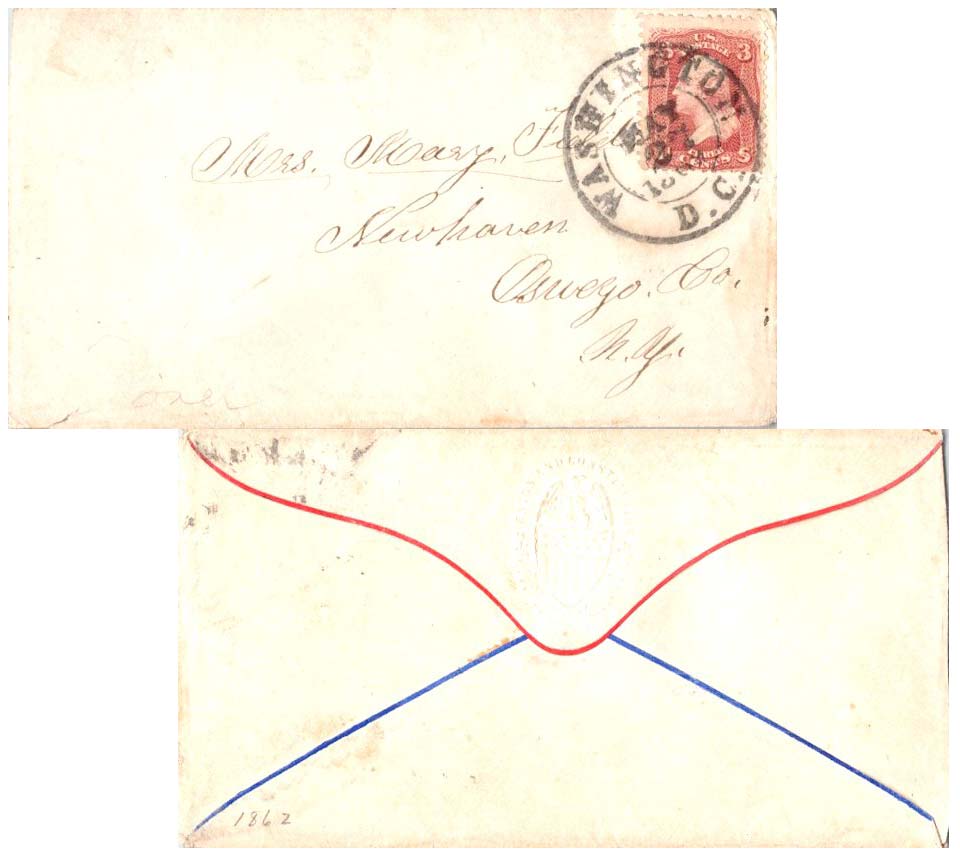 U.S.
POSTAGE
3 3
THREE
CENTS
WASHINGTON
D.C.
MAY
Mrs. Mary, Field
Newhaven
Oswego. Co.
N.Y.
over
1862